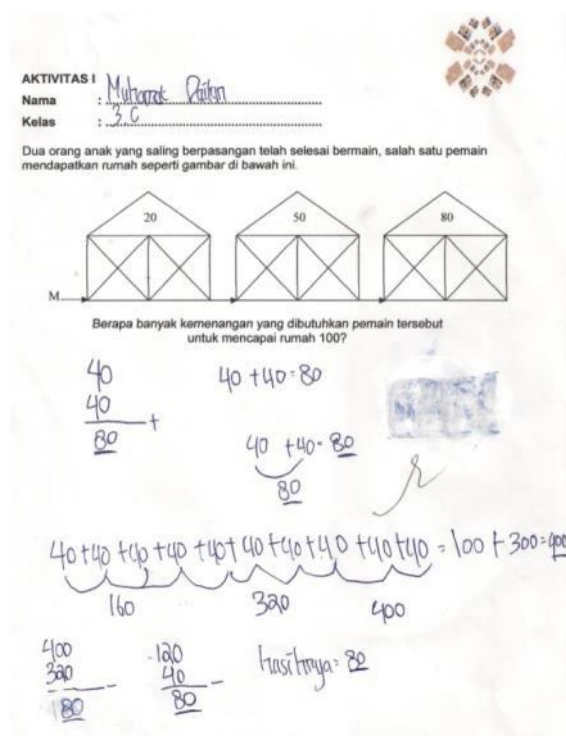 AKTIVITAS I
Nama : Muhamat
Kelas : 3.C
Dua orang anak yang saling berpasangan telah selesai bermain, salah satu pemain
mendapatkan rumah seperti gambar di bawah ini.
20 50 80
M
Berapa banyak kemenangan yang dibutuhkan pemain tersebut
untuk mencapai rumah 100?
40
40
+
80
40+40=80
40 +40=80
80
40+40+40+40+40+40+40+40+40+40=100+300=400
160 320 400
400
320
-
180
120
40
-
80
hasilnya=80